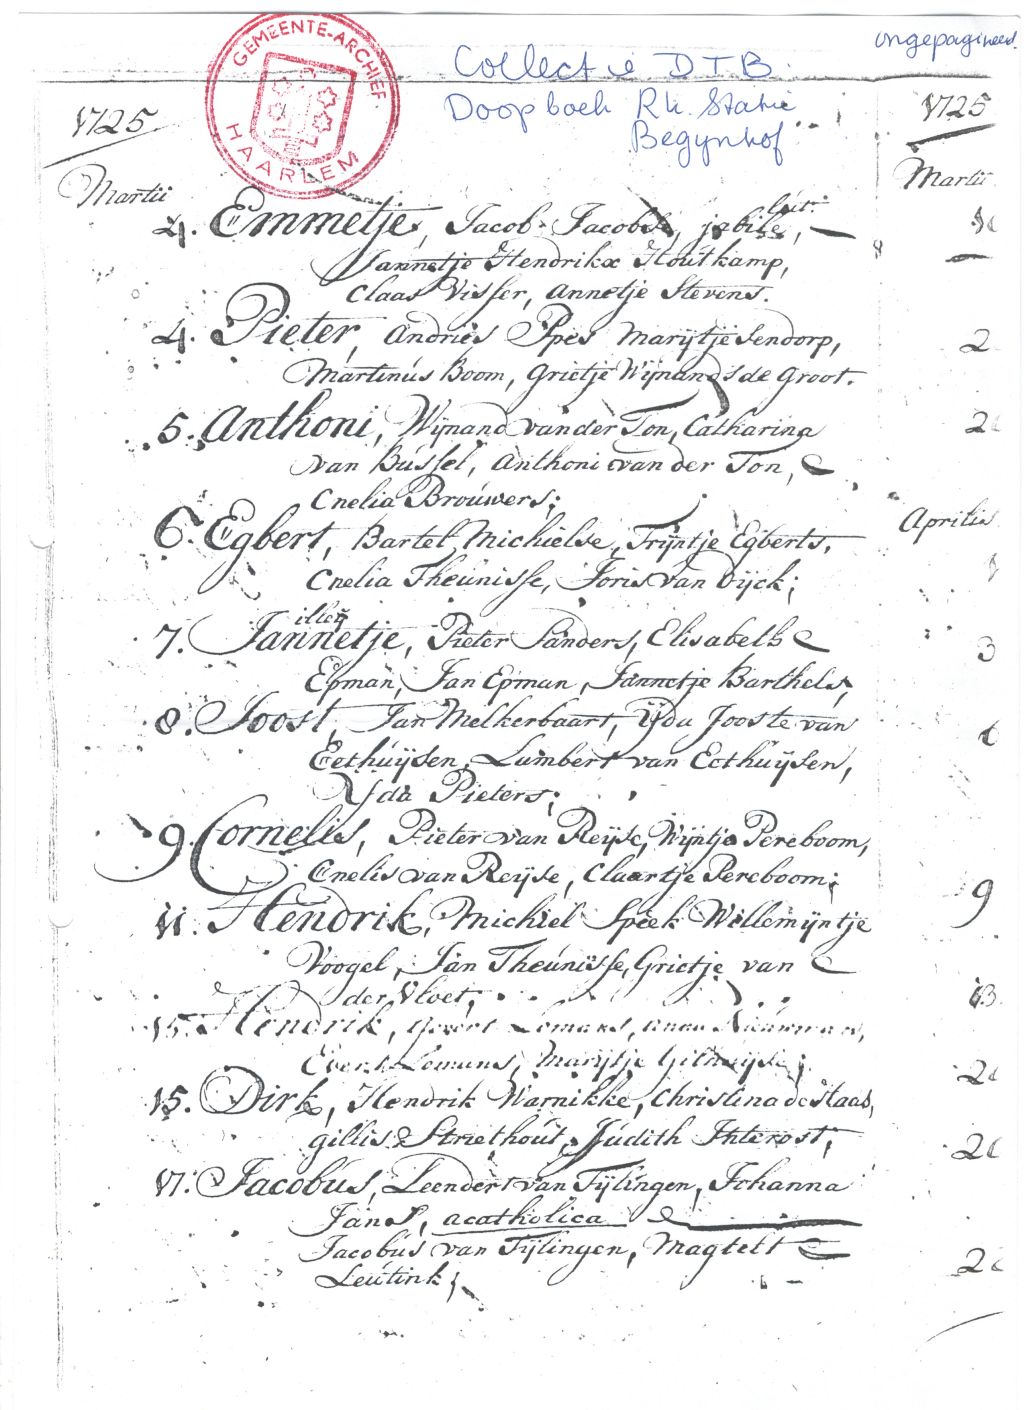 ongepagineerd.
GEMEENTE-ARCHIEF
HAARLEM
Collectie DTB.
Doopboek R.k. Statie
Begijnhof
1725
Martii
4. Emmetje, Jacob Jacobse,
Jannetje Hendrikx Houtkamp,
Claas Visser, Annetje Stevens.
4. Pieter, Andries Spes Marijtje Sendorp,
Martinus Boom, Grietje Wijnands de Groot.
5. Anthoni, Wijnand van der Ton, Catharina
van Bussel, Anthoni van der Ton,
Cnelia Brouwers;
6. Egbert, Bartel Michielse, Trijntje Egberts,
Cnelia Theunisse, Joris van Dijck;
illeg
7. Jannetje, Pieter Sanders, Elisabeth
Epman, Jan Epman, Jannetje Barthels,
8. Joost, Jan Melkerbaart, Yda Jooste van
Eethuijsen, Lumbert van Eethuijsen,
Yda Pieters;
9. Cornelis, Pieter van Reijse, Wijntje Pereboom,
Cnelis van Reijse, Claartje Pereboom;
11. Hendrik, Michiel Speek Willemijntje
Voogel, Jan Theunisse, Grietje van
der Vloet,
15. Hendrik, Lomans, Anna
Evert Lomans, Marijtje
15. Dirk, Hendrik Warnikke, Christina de Haas,
Gillis Striethout, Judith
17. Jacobus, Leendert van Tijlingen, Johanna
Jans, acatholica
Jacobus van Tijlingen, Magtelt
Leutink;
1725
Martii
2
2
Aprilis
3
9
13
2
2
2